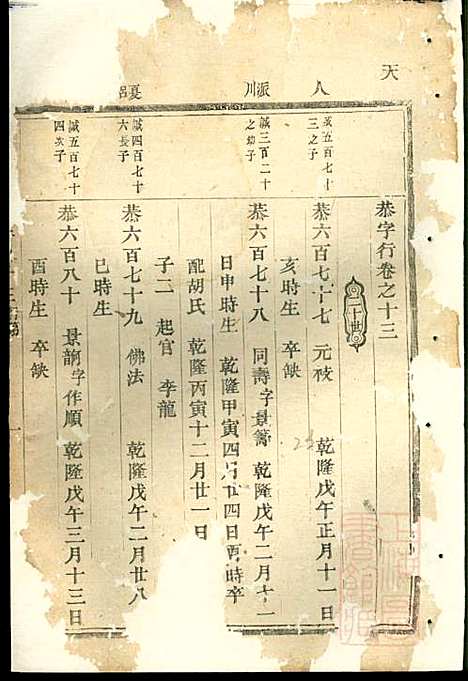 天
八
派川
夏呂
恭字行卷之十三
二十世
誠五百七十
三之子
恭六百七十七 元 乾隆戊午正月十一日
亥時生 卒缺
誠三百二十
之幼子
恭六百七十八 同壽字景籌 乾隆戊午二月十二
日申時生 乾隆甲寅四月廿四日酉時卒
配胡氏 乾隆丙寅十二月廿一日
子二 起官 李龍
誠四百七十
六長子
恭六百七十九 佛法 乾隆戊午二月廿八
巳時生
誠五百七十
四次子
恭六百八十 景韻字作順 乾隆戊午三月十三日
酉時生 卒缺